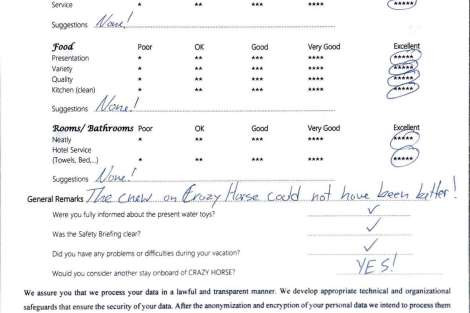 Service * ** *** **** *****
Suggestions None!
Food Poor OK Good Very Good Excellent
Presentation * ** *** **** *****
Variety * ** *** **** *****
Quality * ** *** **** *****
Kitchen (clean) * ** *** **** *****
Suggestions None!
Rooms/ Bathrooms Poor OK Good Very Good Excellent
Neatly * ** *** **** *****
Hotel Service
(Towels, Bed,...) * ** *** **** *****
Suggestions None!
General Remarks The crew on Crazy Horse could not have been better!
Were you fully informed about the present water toys? ✓
Was the Safety Briefing clear? ✓
Did you have any problems or difficulties during your vacation? ✓
Would you consider another stay onboard of CRAZY HORSE? YES!
We assure you that we process your data in a lawful and transparent manner. We develop appropriate technical and organizational
safeguards that ensure the security of your data. After the anonymization and encryption of your personal data we intend to process them